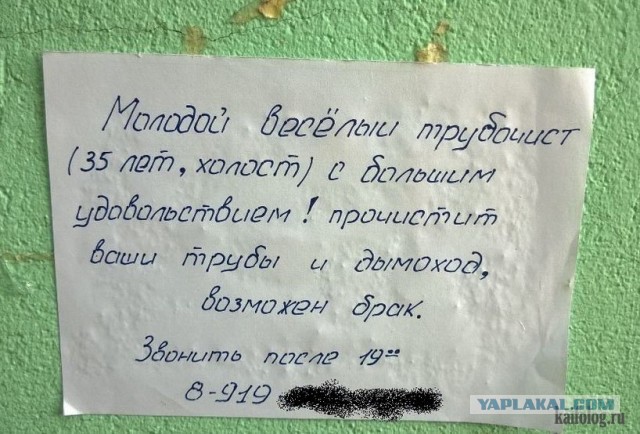 Молодой весёлый трубочист
(35 лет, холост) с большим
удовольствием! прочистит
ваши трубы и дымоход,
возможен брак.
Звонить после 19⁰⁰
8-919
YAPLAKAL.COM
kaifolog.ru